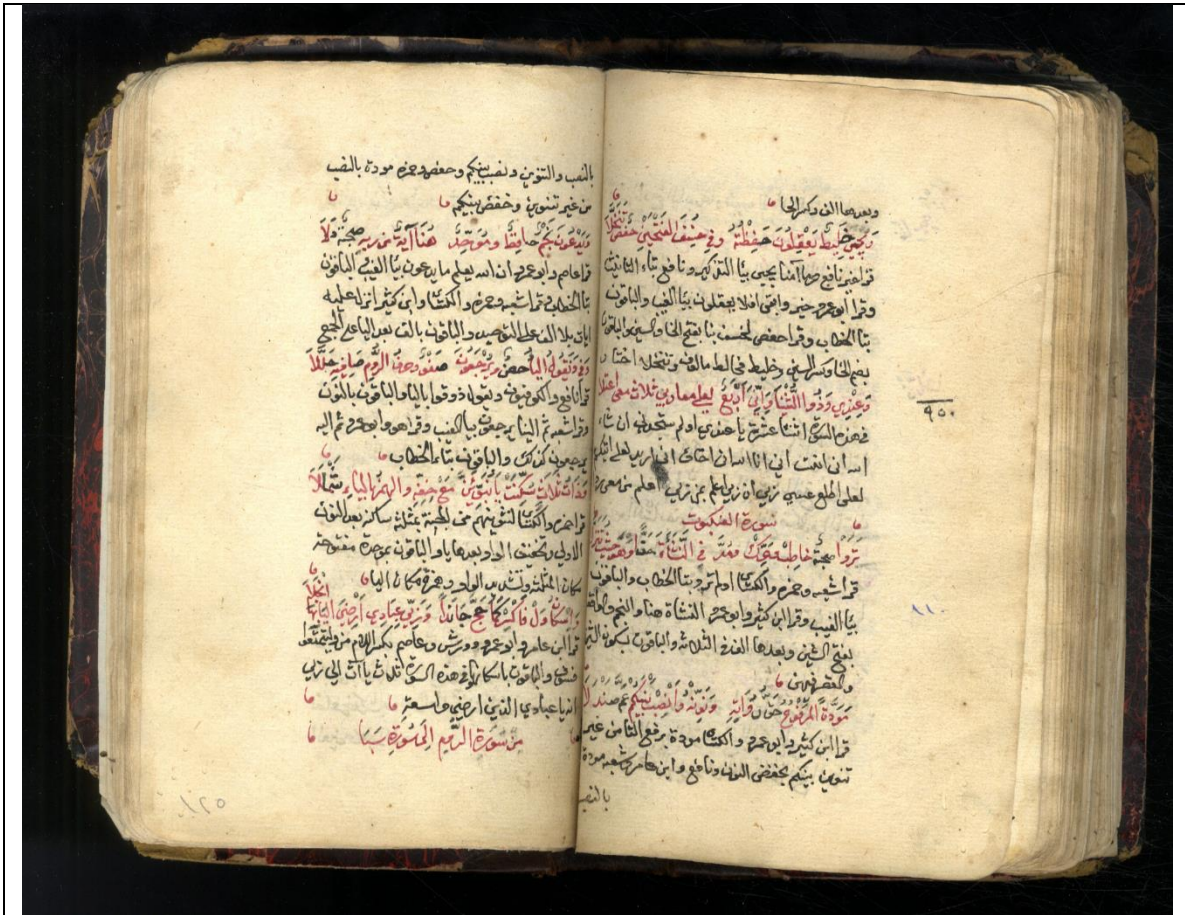 وبعدها الف وكسر الحا
ويجبى خليط يعقلون حفظته وفي خسف الفتحين حفص تنخلا
قرا غير نافع حرما آمنا يجبى بيا التذكير ونافع بتاء التانيث
وقرا ابو عمرو خير وابقى افلا يعقلون بيا الغيب والباقون
بتا الخطاب وقرا حفص لخسف بنا بفتح الخا والسين والباقون
بضم الخا وكسر السين وخليط مخالط مالوف وتنخلا اختار
وعندي وذو الثنيا واني اربع لعلي معا ربي ثلاث معي اعتلا
في هذه السورة اثنتا عشرة ياء عندي اولم ستجدني ان شاء
الله اني انست اني انا الله اني اخاف اني اريد لعلي اتيكم
لعلي اطلع عسى ربي ان ربي اعلم بمن ربي اعلم من معي ردا
سورة العنكبوت
تروا صحبة خاطب وحرك ومد في النشاءة حقا وهو حيث تنزلا
قرا شعبه وحمزه والكسائي اولم تروا بتا الخطاب والباقون
بيا الغيب وقرا ابن كثير وابو عمرو النشاة هنا والنجم والواقعة
بفتح الشين وبعدها الف في الثلاثه والباقون بسكون الشين
والقصر فيهن
مودة المرفوع حق رواته ونونه وانصب بينكم عم صندلا
قرا ابن كثير وابو عمرو والكسائي مودة برفع التا من غير
تنوين بينكم بخفض النون ونافع وابن عامر وشعبه مودة
بالنصب
٩٥٠
١١
بالنصب والتنوين ونصب بينكم وحفص وحمزه مودة بالنصب
من غير تنوين وخفض بينكم
ويدعون نجم حافظ وموحد هنا آية من ربه صحبة دلا
قرا عاصم وابو عمرو ان الله يعلم ما يدعون بيا الغيب والباقون
بتا الخطاب وقرا شعبه وحمزه والكسائي وابن كثير انزل عليه
ايات بلا الف على التوحيد والباقون بالف بعد اليا على الجمع
وفي ونقول اليا حصن ويرجعون صفو وحرف الروم صافيه حللا
قرا نافع والكوفيون ويقول ذوقوا باليا والباقون بالنون
وقرا شعبه ثم الينا يرجعون بيا الغيب وقرا هو وابو عمرو ثم اليه
يرجعون كذلك والباقون بتا الخطاب
وذات ثلاث سكنت با نبوئن مع خفه والهمز بالياء شمللا
قرا حمزه والكسائي لنثوينهم من الجنة بمثلثة ساكنه بعد النون
الاولى وتخفيف الواو وبعدها يا والباقون بموحدة مفتوحة
مكان المثلثة وتشديد الواو وهمزة مكان اليا
واسكان ول فاكسر كما حج جا ندا وربي عبادي ارضي اليا بها انجلا
قرا ابن عامر وابو عمرو وورش وعاصم بكسر اللام من وليتمتعوا
فسوف والباقون باسكانها وفي هذه السورة ثلاث يا آت الى ربي
انه يا عبادي الذين ارضي واسعة
من سورة الروم الى سورة سبا
١٢٥